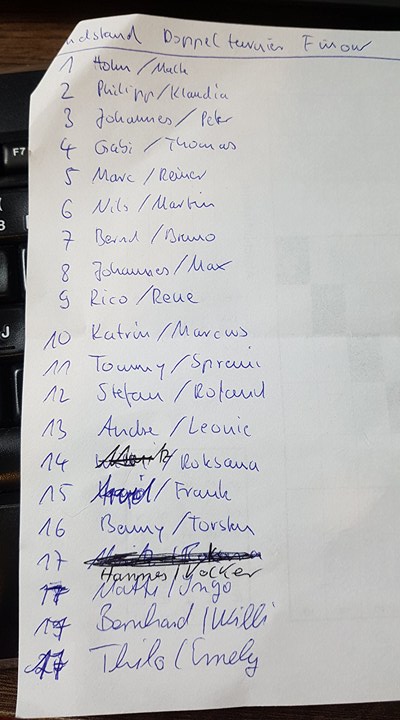 ndstand Doppelturnier Finow
1 Holm / Maik
2 Philipp / Klaudia
3 Johannes / Peter
4 Gabi / Thomas
5 Marc / Reiner
6 Nils / Martin
7 Bernd / Bruno
8 Johannes / Max
9 Rico / Rene
10 Katrin / Marcus
11 Tommy /
12 Stefan / Roland
13 Andre / Leonie
14 / Roksana
15 / Frank
16 Benny / Torsten
17
Hannes / Volker
17 / Ingo
19 Bernhard / Willi
17 Thilo / Emely
F7
J